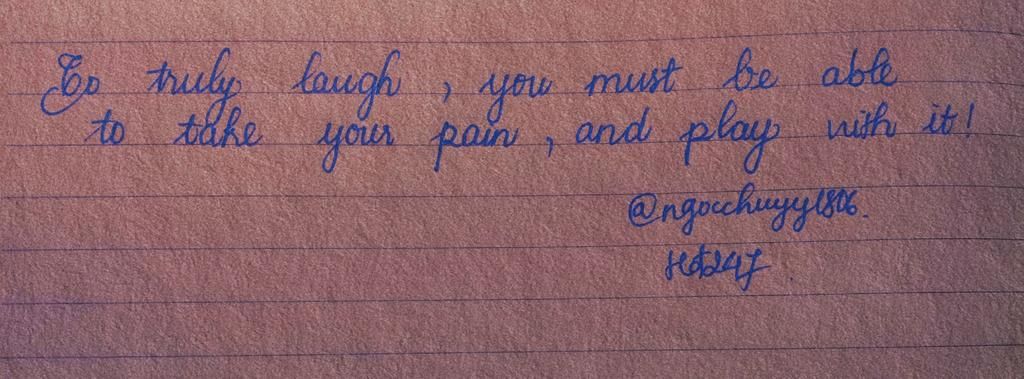 To truly laugh, you must be able
to take your pain, and play with it!
@ngocchuyy1806.
Hd247